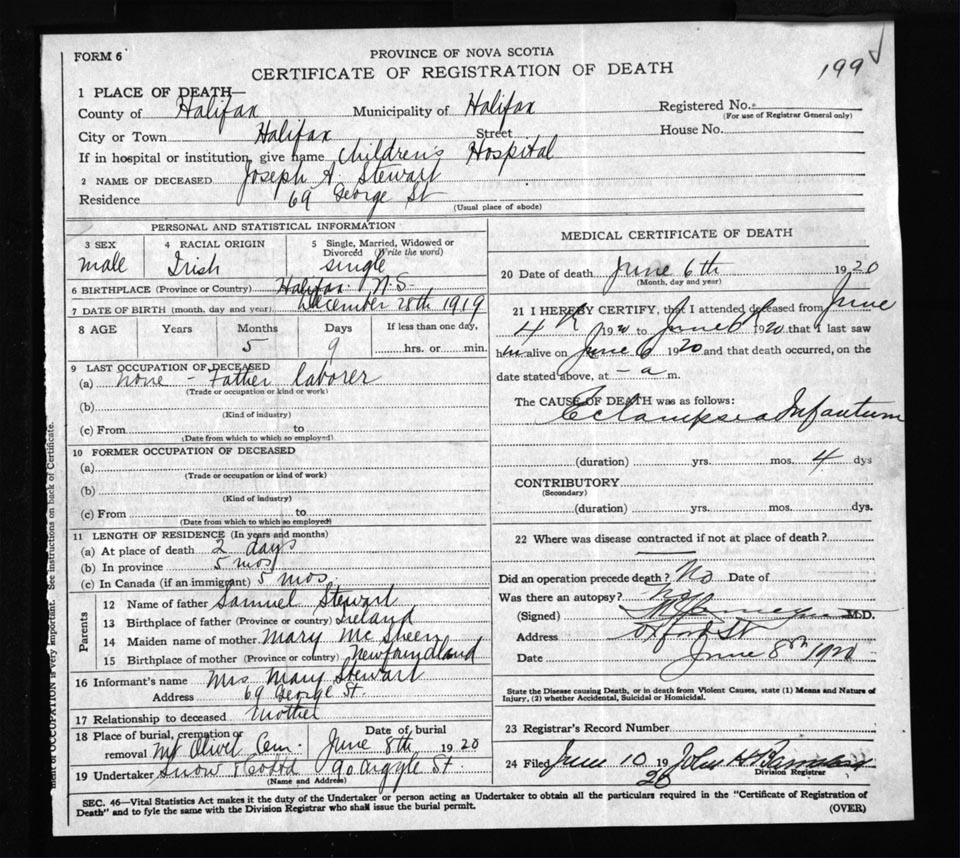 FORM 6
PROVINCE OF NOVA SCOTIA
CERTIFICATE OF REGISTRATION OF DEATH
199
1 PLACE OF DEATH—
County of Halifax Municipality of Halifax Registered No.
(For use of Registrar General only)
City or Town Halifax Street House No.
If in hospital or institution, give name Children's Hospital
2 NAME OF DECEASED Joseph A. Stewart
Residence 69 George St
(Usual place of abode)
PERSONAL AND STATISTICAL INFORMATION
3 SEX male
4 RACIAL ORIGIN Irish
5 Single, Married, Widowed or Divorced (Write the word) single
6 BIRTHPLACE (Province or Country) Halifax N.S.
7 DATE OF BIRTH (month, day and year) December 28th 1919
8 AGE Years Months Days If less than one day,
5 9 hrs. or min.
9 LAST OCCUPATION OF DECEASED
(a) none - Father laborer
(Trade or occupation or kind or work)
(b)
(Kind of industry)
(c) From to
(Date from which to which so employed)
10 FORMER OCCUPATION OF DECEASED
(a)
(Trade or occupation or kind of work)
(b)
(Kind of industry)
(c) From to
(Date from which to which so employed)
11 LENGTH OF RESIDENCE (In years and months)
(a) At place of death 2 days
(b) In province 5 mos
(c) In Canada (if an immigrant) 5 mos.
Parents
12 Name of father Samuel Stewart
13 Birthplace of father (Province or country) Ireland
14 Maiden name of mother Mary
15 Birthplace of mother (Province or country) Newfoundland
16 Informant's name Mrs Mary Stewart
Address 69 George St.
17 Relationship to deceased Mother
18 Place of burial, cremation or removal Mt Olivet Cem.
Date of burial June 8th 1920
19 Undertaker Snow 90 Argyle St.
(Name and Address)
MEDICAL CERTIFICATE OF DEATH
20 Date of death June 6th 1920
(Month, day and year)
21 I HEREBY CERTIFY, that I attended deceased from June
4 1920 to June 6 1920 that I last saw
him alive on June 6 1920 and that death occurred, on the
date stated above, at - a m.
The CAUSE OF DEATH was as follows:
Eclampsia Infantum
(duration) yrs. mos. 4 dys
CONTRIBUTORY
(Secondary)
(duration) yrs. mos. dys.
22 Where was disease contracted if not at place of death?
Did an operation precede death? No Date of
Was there an autopsy? No
(Signed) M.D.
Address Oxford St
Date June 8th 1920
State the Disease causing Death, or in death from Violent Causes, state (1) Means and Nature of
Injury, (2) whether Accidental, Suicidal or Homicidal.
23 Registrar's Record Number
24 Filed June 10 1920 John
Division Registrar
SEC. 46—Vital Statistics Act makes it the duty of the Undertaker or person acting as Undertaker to obtain all the particulars required in the "Certificate of Registration of
Death" and to fyle the same with the Division Registrar who shall issue the burial permit.
(OVER)
OF OCCUPATION is very important. See instructions on back of Certificate.